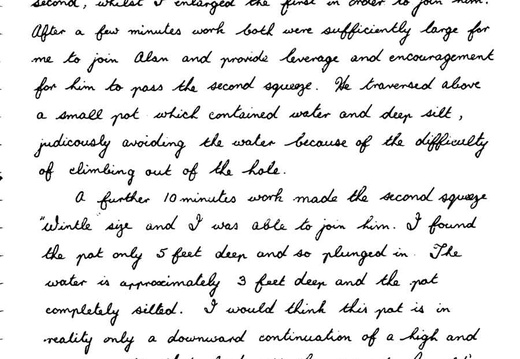 second, whilst I enlarged the first in order to join him.
After a few minutes work both were sufficiently large for
me to join Alan and provide leverage and encouragement
for him to pass the second squeeze. He traversed above
a small pot which contained water and deep silt,
judiciously avoiding the water because of the difficulty
of climbing out of the hole.
A further 10 minutes work made the second squeeze
"Wintle size and I was able to join him. I found
the pot only 5 feet deep and so plunged in. The
water is approximately 3 feet deep and the pot
completely silted. I would think this pot is in
reality only a downward continuation of a high and